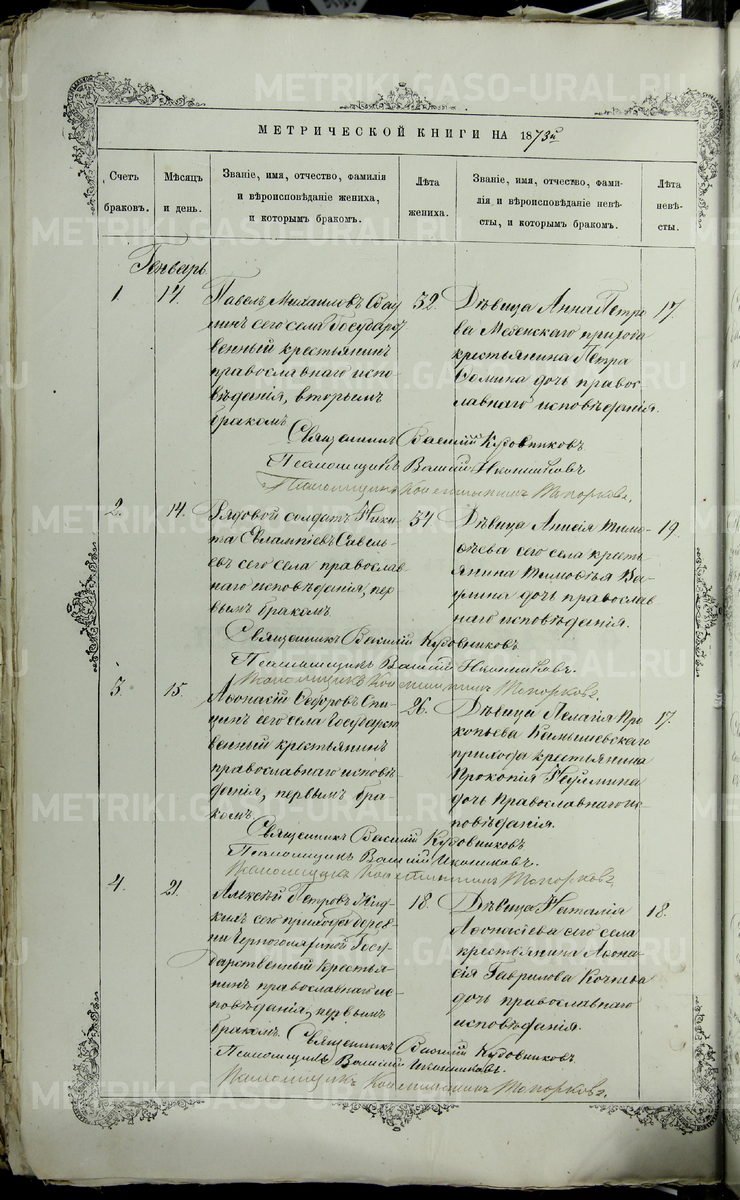 МЕТРИЧЕСКОЙ КНИГИ НА 1873й
Счетъ браковъ.
Мѣсяцъ и день.
Званіе, имя, отчество, фамилія и вѣроисповѣданіе жениха, и которымъ бракомъ.
Лѣта жениха.
Званіе, имя, отчество, фамилія и вѣроисповѣданіе невѣсты, и которымъ бракомъ.
Лѣта невѣсты.
Генварь
1. 14.
Павелъ Михаиловъ
нинъ сего села Государст
венный крестьянинъ
православнаго испо
вѣданія, вторымъ
бракомъ
52.
Дѣвица Анна Петро
ва Мезенскаго прихода
крестьянина Петра
Ѳомина дочь правос
лавнаго исповѣданія.
17.
Священникъ Василій Кудовниковъ
Псаломщикъ Василій Иконниковъ
Псаломщикъ Константинъ Топорковъ.
2. 14.
Рядовой солдатъ Ники
та Евлампіевъ Савель
евъ сего села православ
наго исповѣданія, пер
вымъ бракомъ.
34
Дѣвица Анисія Тимо
ѳѣева сего села кресть
янина Тимофѣя
дочь православ
наго исповѣданія.
19.
Священникъ Василій Кудовниковъ
Псаломщикъ Василій Иконниковъ.
Псаломщикъ Константинъ Топорковъ.
3. 15.
Аѳонасій Ѳедоровъ Спи
цинъ сего села Государст
венный крестьянинъ
православнаго исповѣ
данія, первымъ бра
комъ
26.
Дѣвица Пелагія Про
копьева Камышевскаго
прихода крестьянина
Прокопія
дочь Православнаго ис
повѣданія.
17.
Священникъ Василій Кудовниковъ
Псаломщикъ Василій Иконниковъ.
Псаломщикъ Константинъ Топорковъ
4. 21.
Алексѣй Петровъ
сего прихода дерев
ни Госу
дарственный крестья
нинъ православнаго ис
повѣданія, первымъ
бракомъ.
18.
Дѣвица Наталія
Аѳонасіева сего села
крестьянина Аѳона
сія Гаврилова Кочнева
дочь православнаго
исповѣданія.
18.
Священникъ Василій Кудовниковъ
Псаломщикъ Василій Иконниковъ.
Псаломщикъ Константинъ Топорковъ.
METRIKI.GASO-URAL.RU